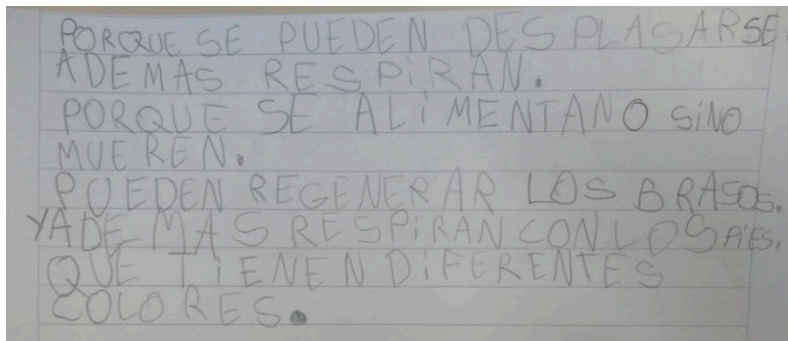 PORQUE SE PUEDEN DESPLASARSE
ADEMAS RESPiRAN.
PORQUE SE ALiMENTAN O SiNO
MUEREN.
PUEDEN REGENERAR LOS BRASOS.
Y ADEMAS RESPiRAN CON LOS PiES.
QUE TiENEN DiFERENTES
COLORES.